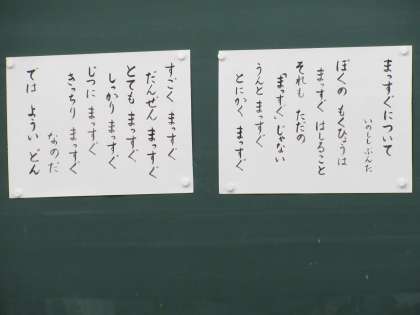 まっすぐについて
いのししぶんた
ぼくの もくひょうは
まっすぐ はしること
それも ただの
「まっすぐ」じゃない
うんと まっすぐ
とにかく まっすぐ
すごく まっすぐ
だんぜん まっすぐ
とても まっすぐ
しっかり まっすぐ
じつに まっすぐ
きっちり まっすぐ
なのだ
では ようい どん